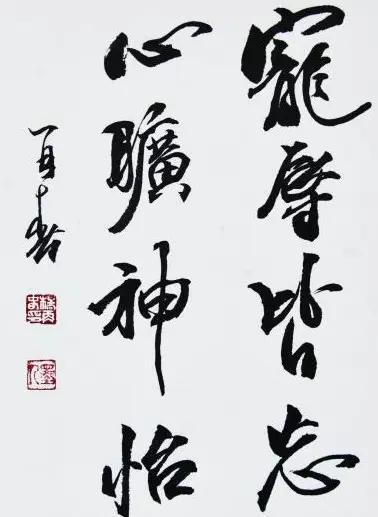 寵辱皆忘
心曠神怡